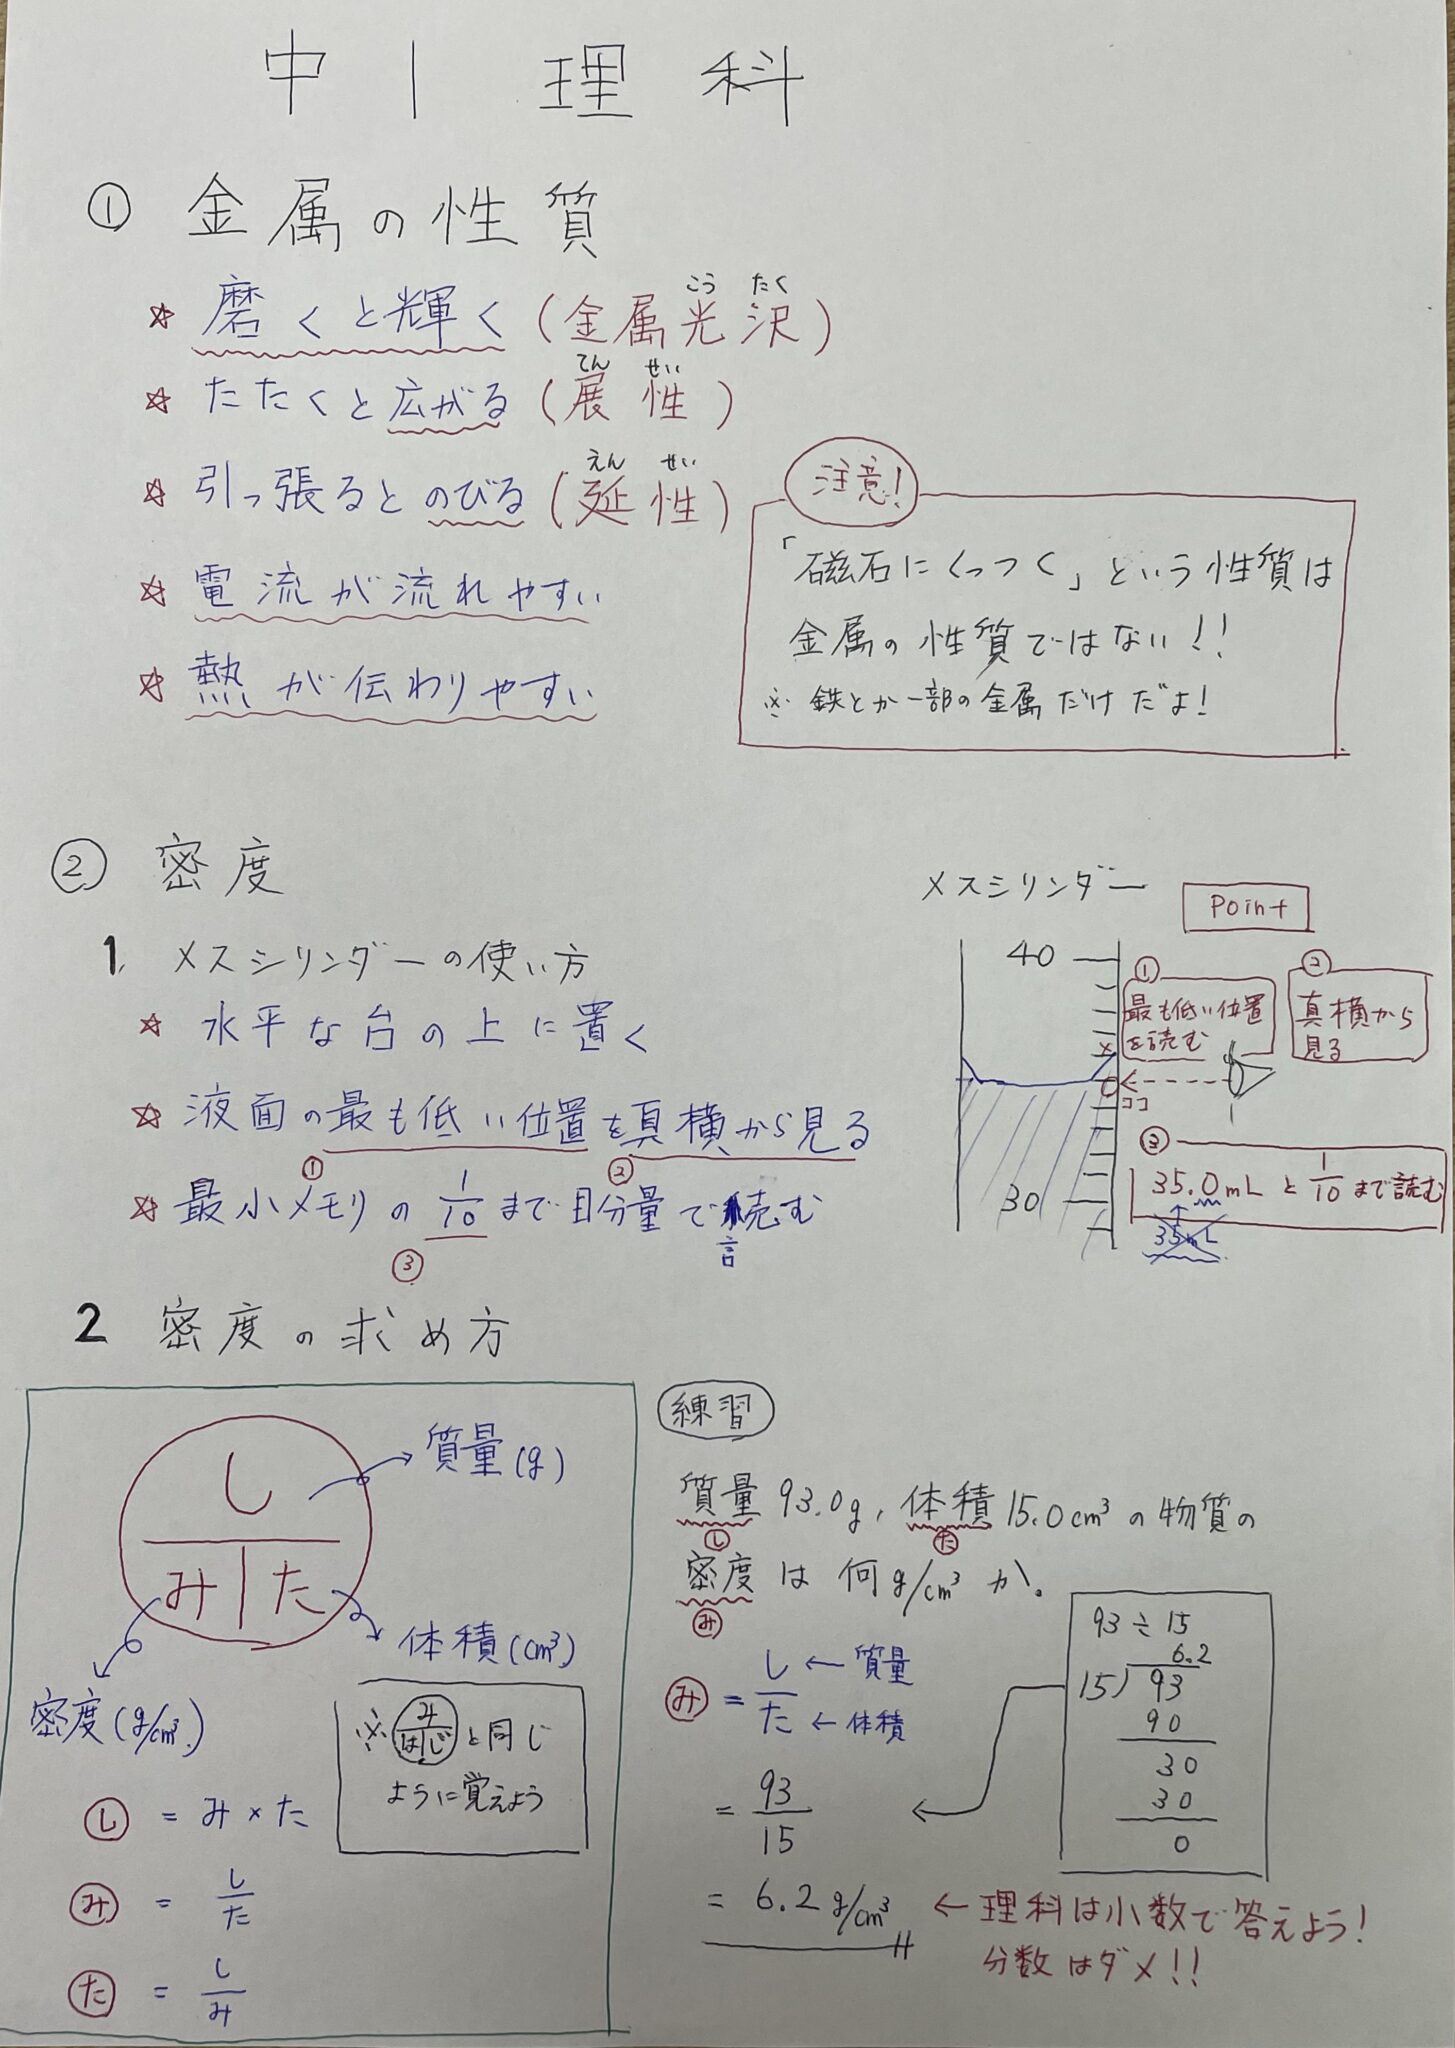 中1 理科
① 金属の性質
☆ 磨くと輝く(金属光沢)
こう たく
☆ たたくと広がる(展性)
てん せい
☆ 引っ張るとのびる(延性)
えん せい
☆ 電流が流れやすい
☆ 熱が伝わりやすい
注意!
「磁石にくっつく」という性質は
金属の性質ではない!!
※ 鉄とか一部の金属だけだよ!
② 密度
1. メスシリンダーの使い方
☆ 水平な台の上に置く
☆ 液面の最も低い位置を真横から見る
① ②
☆ 最小メモリの1/10まで目分量で読む
③
言
メスシリンダー
Point
40
30
① 最も低い位置
を読む
② 真横から
見る
ココ
③ 35.0mLと1/10まで読む
35mL
2 密度の求め方
し
み た
質量(g)
体積(cm³)
密度(g/cm³)
※ み
はじ と同じ
ように覚えよう
し = み × た
み = し/た
た = し/み
練習
質量93.0g、体積15.0cm³の物質の
し た
密度は何g/cm³か。
み
み = し/た
← 質量
← 体積
= 93/15
= 6.2g/cm³
93÷15
6.2
15)93
90
30
30
0
← 理科は小数で答えよう!
分数はダメ!!